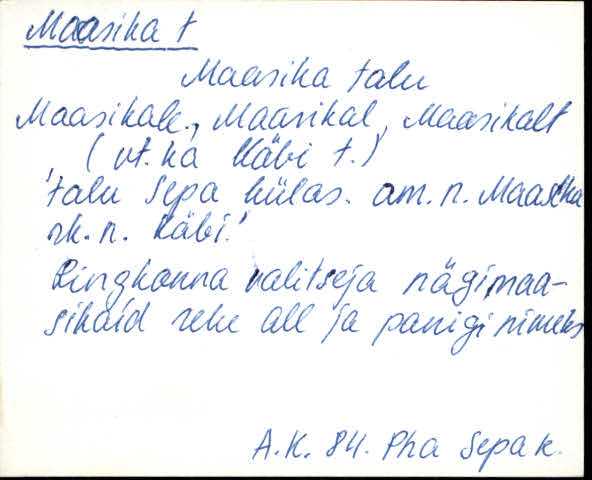 Maasika t
Maasika talu
Maasikale, Maasikal, Maasikalt
(vt. ka Käbi t.)
'talu Sepa külas. am. n. Maasika
rk. n. Käbi.'
Ringkonna valitseja nägi maa-
sikaid rehe all ja panigi nimeks
A.K. 84. Pha Sepa k.